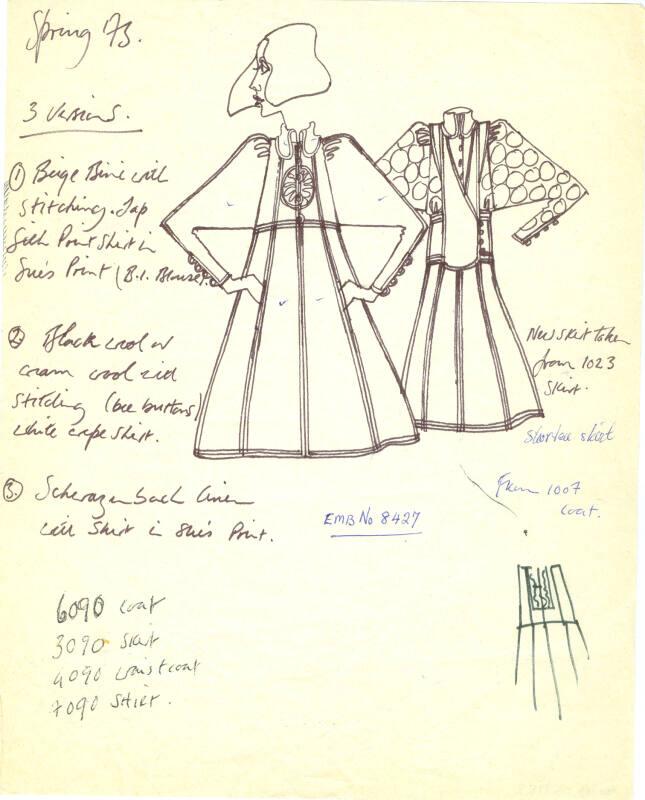 Spring '73.
3 Versions.
① Beige with
stitching. Jap
Silk Print Shirt in
Sue's Print (B.I. Blouse).
② Black wool or
cream wool
stitching (bee buttons)
white crepe shirt.
3. linen
with Shirt in Sue's Print.
New skirt taken
from 1023
skirt.
skirt
From 1007
coat.
EMB No 8427
6090 coat
3090 skirt
4090 waistcoat
7090 shirt.